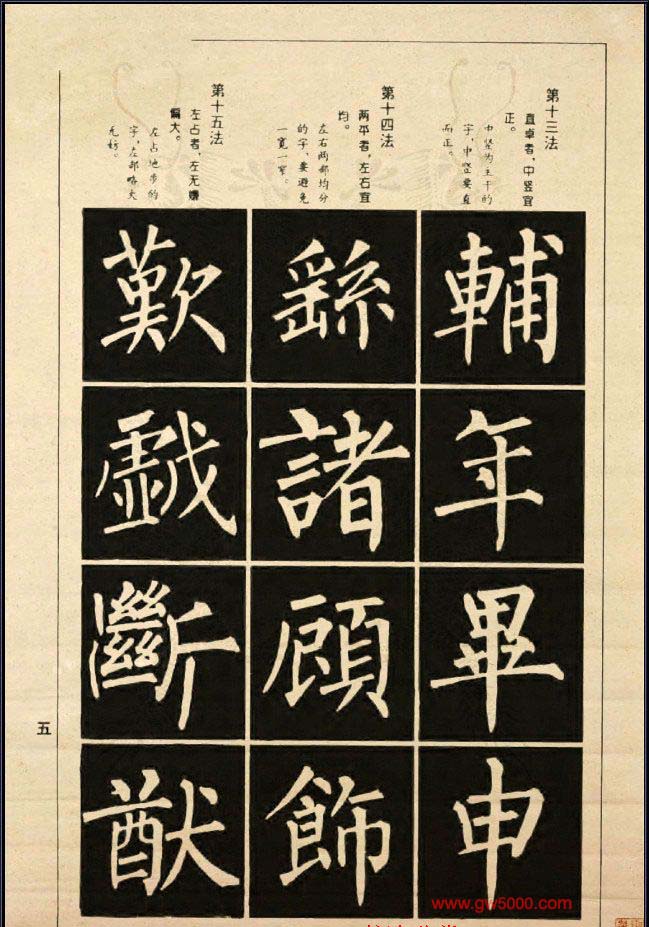 第十三法
直卓者，中竖宜
正。
中竖为主干的
字，中竖要直
而正。
輔
年
畢
申
第十四法
两平者，左右宜
均。
左右两部均分
的字，要避免
一宽一窄。
繇
諸
顧
飾
第十五法
左占者，左无嫌
偏大。
左占地步的
字，左部略大
无妨。
歎
戯
斷
猷
五
www.gw5000.com